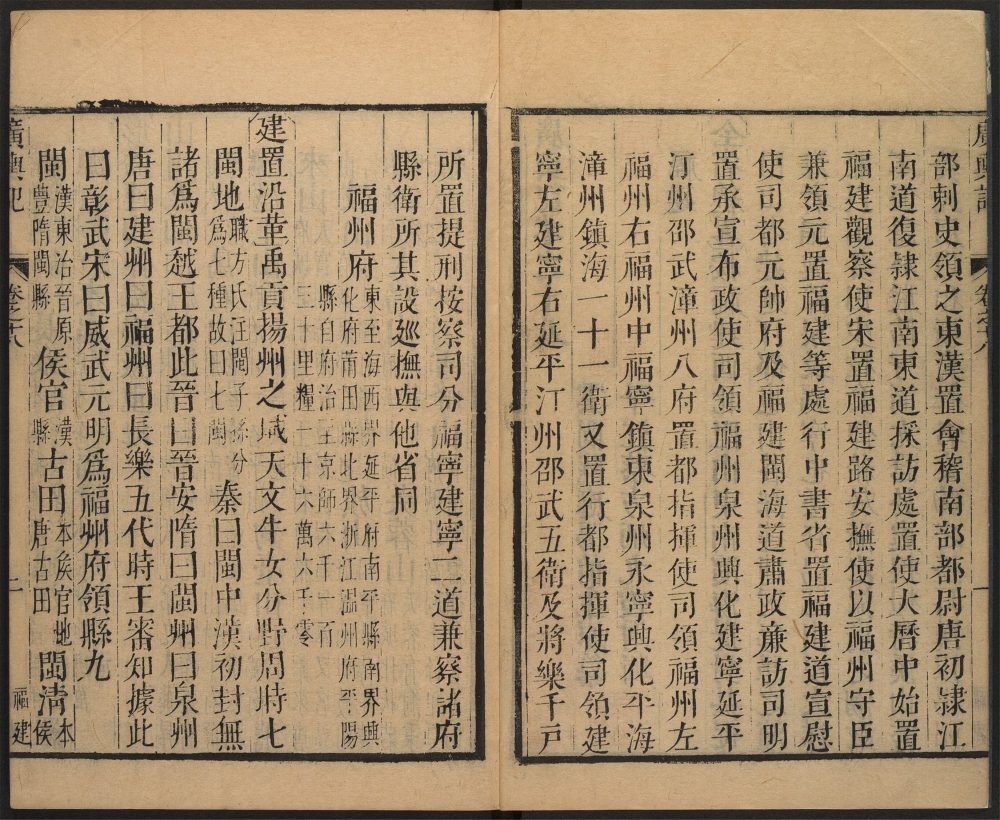 廣輿記
卷之十八
部刺史領之東漢置會稽南部都尉唐初隸江
南道復隸江南東道採訪處置使大曆中始置
福建觀察使宋置福建路安撫使以福州守臣
兼領元置福建等處行中書省置福建道宣慰
使司都元帥府及福建閩海道肅政亷訪司明
置承宣布政使司領福州泉州興化建寧延平
汀州邵武漳州八府置都指揮使司領福州左
福州右福州中福寧鎮東泉州永寧興化平海
漳州鎮海一十一衛又置行都指揮使司領建
寧左建寧右延平汀州邵武五衛及將樂千戸
所置提刑按察司分福寧建寧二道兼察諸府
縣衛所其設廵撫與他省同
福州府
東至海西界延平府南平縣南界興
化府莆田縣北界浙江溫州府平陽
縣自府治至京師六千一百
三十里糧一十六萬六千零
建置沿革禹貢揚州之域天文牛女分野周時七
閩地
職方氏汪閩子孫分
爲七種故曰七閩
秦曰閩中漢初封無
諸爲閩越王都此晉曰晉安隋曰閩州曰泉州
唐曰建州曰福州曰長樂五代時王審知據此
曰彰武宋曰威武元明爲福州府領縣九
閩
漢東冶晉原
豐隋閩縣
侯官
漢
縣
古田
本矦官地
唐古田
閩清
本
侯
廣輿記
卷之十八
一
福建